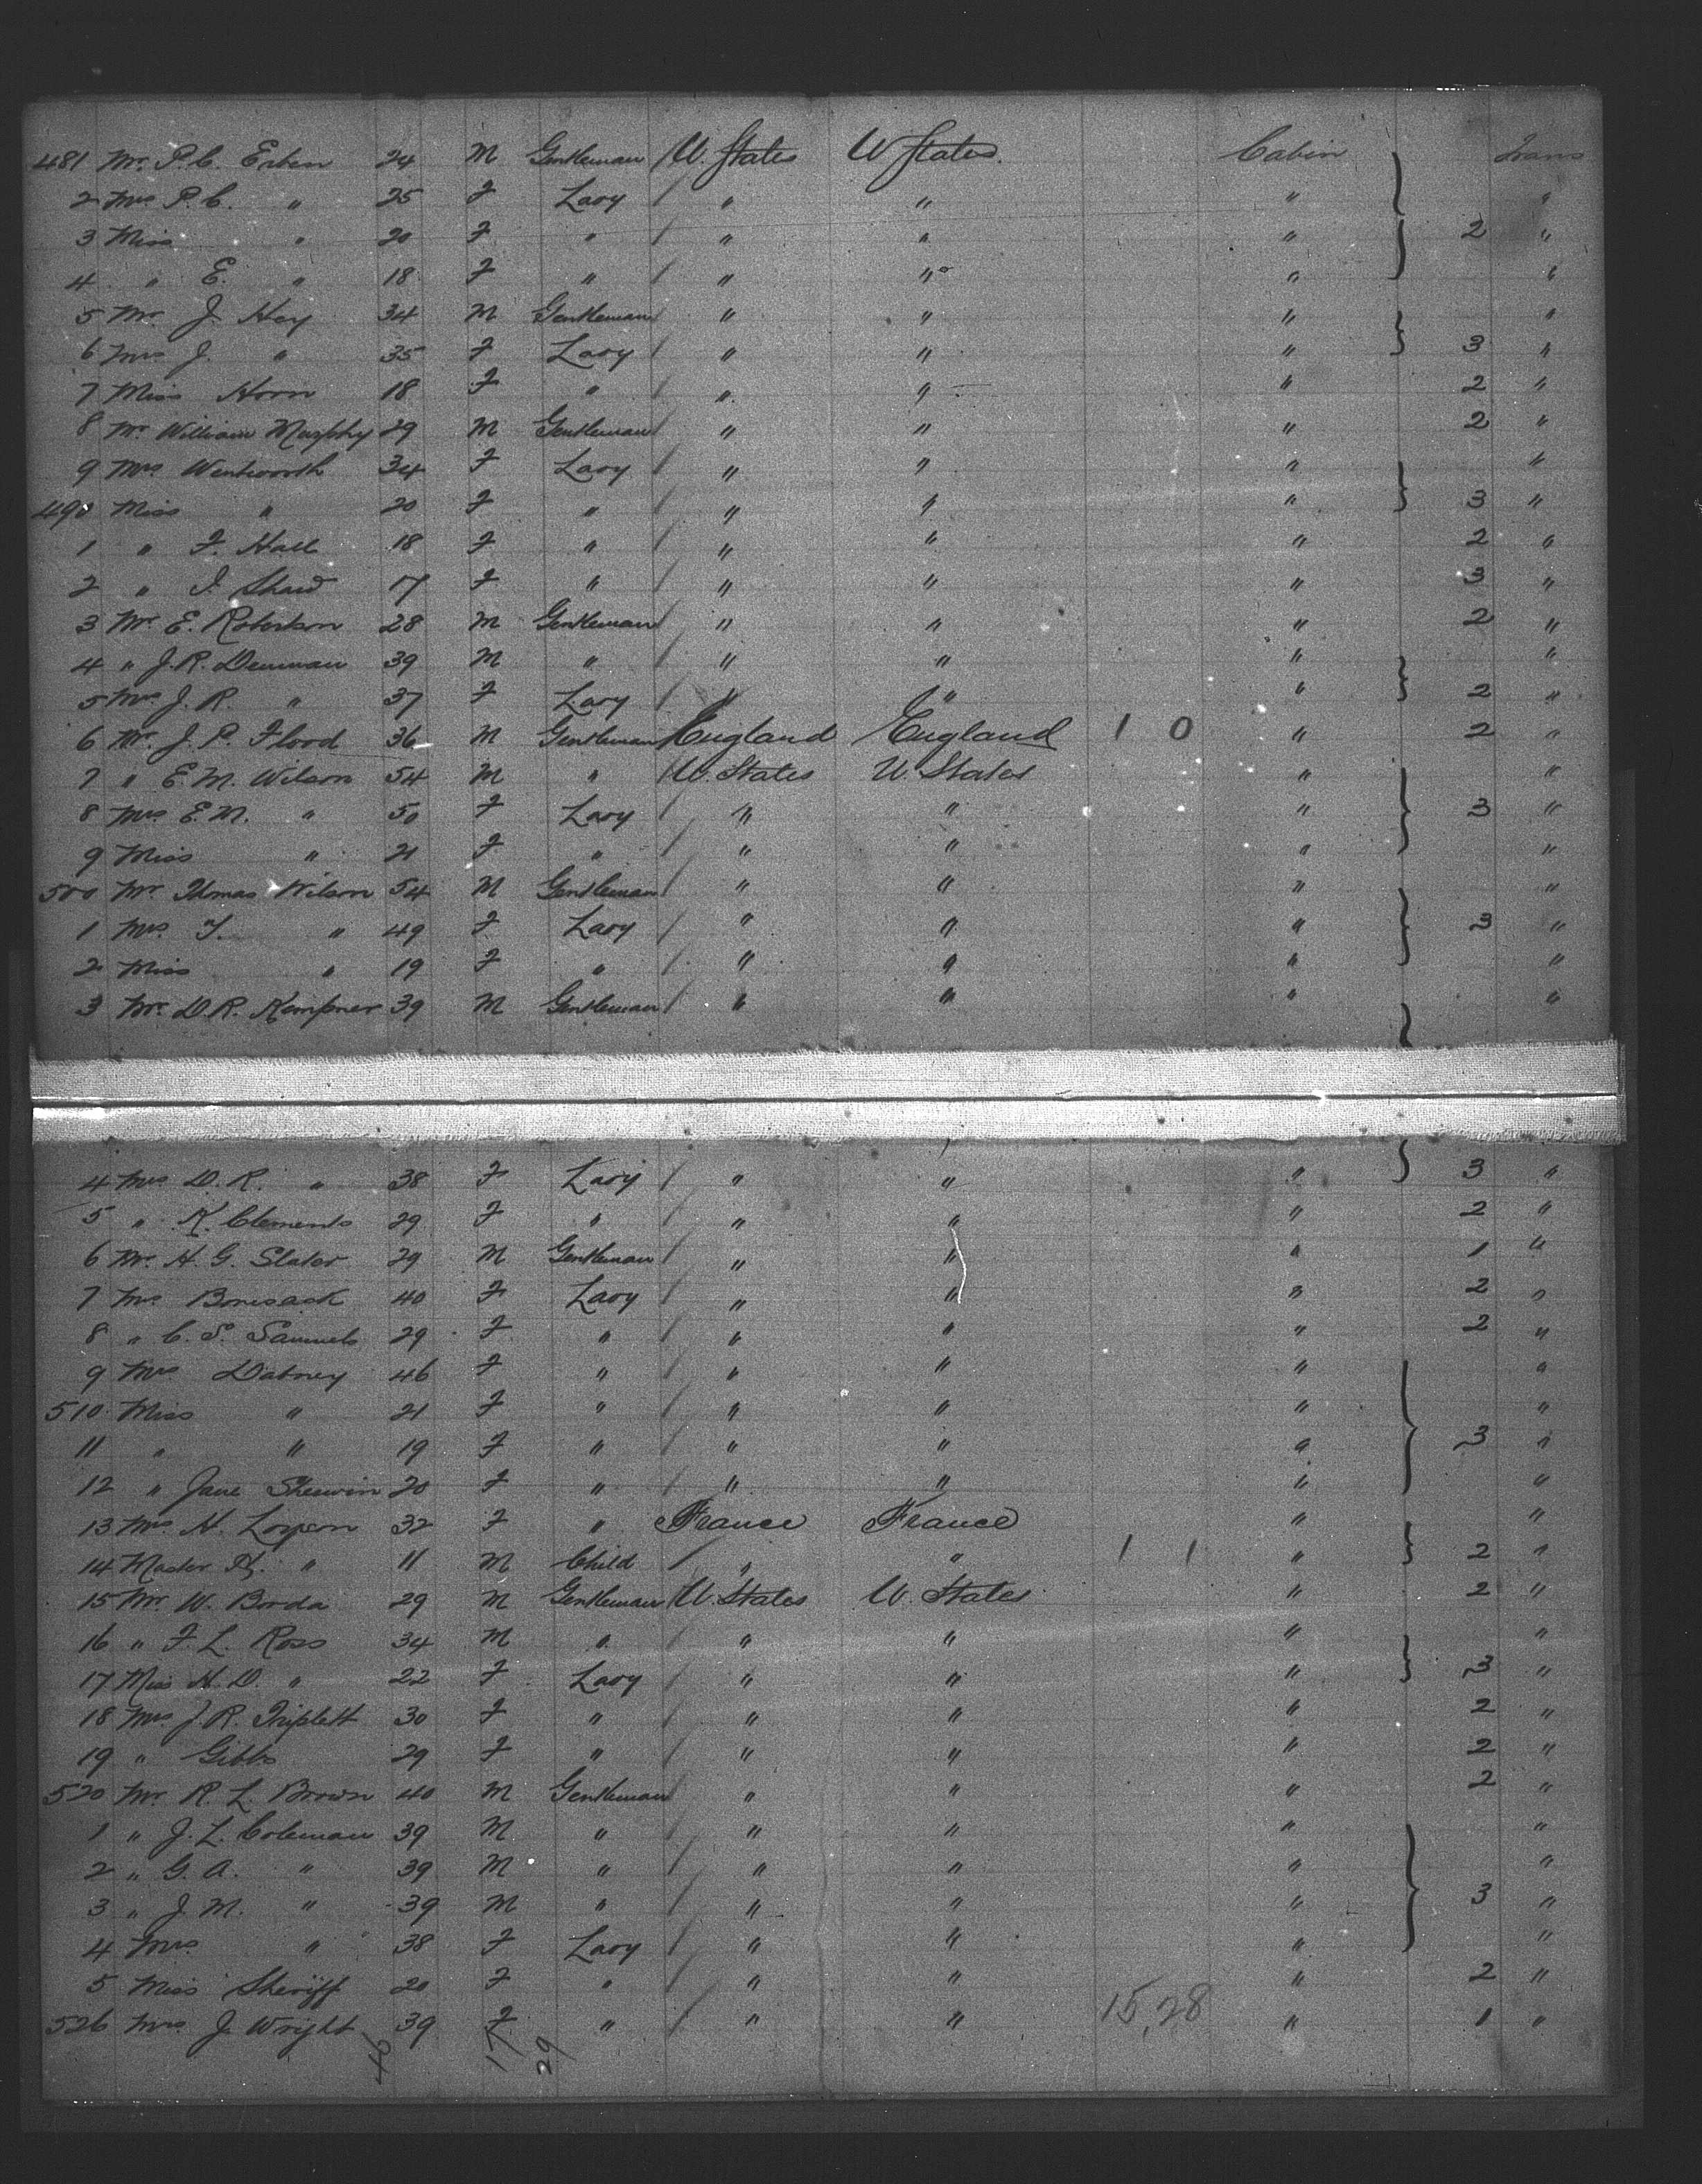 481 Mr. P.C. Erben 24 M Gentleman U. States U States. Cabin Trans
2 Mrs P.C. " 25 F Lady " " " "
3 Miss " 20 F " " " " 2 "
4 " E. " 18 F " " " " "
5 Mr. J. Hey 34 M Gentleman " " " "
6 Mrs J. " 35 F Lady " " " 3 "
7 Miss Horn 18 F " " " " 2 "
8 Mr William Murphy 29 M Gentleman " " " 2 "
9 Mrs Wentworth 34 F Lady " " " "
490 Miss " 20 F " " " " 3 "
1 " F. Hall 18 F " " " " 2 "
2 " I. Shaw 17 F " " " " 3 "
3 Mr. E. Robertson 28 M Gentleman " " " 2 "
4 " J.R. Denman 39 M " " " " "
5 Mrs J.R. " 37 F Lady " " " 2 "
6 Mr. J.P. Flood 36 M Gentleman England England 1 0 " 2 "
7 " E.M. Wilson 54 M " U. States U States " "
8 Mrs E.M. " 50 F Lady " " " 3 "
9 Miss " 21 F " " " " "
500 Mr Thomas Wilson 54 M Gentleman " " " "
1 Mrs. T. " 49 F Lady " " " 3 "
2 Miss " 19 F " " " " "
3 Mr. D.R. Kempner 39 M Gentleman " " " "
4 Mrs D.R. " 38 F Lady " " " 3 "
5 " K. Clements 29 F " " " " 2 "
6 Mr. H.G. Slater 29 M Gentleman " " " 1 "
7 Mrs Bonsack 40 F Lady " " " 2 "
8 " C.S. Samuels 29 F " " " " 2 "
9 Mrs Dabney 46 F " " " " "
510 Miss " 21 F " " " " "
11 " " 19 F " " " " 3 "
12 " Jane Sherwin 20 F " " " " "
13 Mrs H. 32 F " France France " "
14 Master H. " 11 M Child " " 1 1 " 2 "
15 Mr. W. Borda 29 M Gentleman U. States U. States " 2 "
16 " F.L. Ross 34 M " " " " "
17 Miss H.D. " 22 F Lady " " " 3 "
18 Mrs. J.R. Triplett 30 F " " " " 2 "
19 " Gibbs 29 F " " " " 2 "
520 Mr R.L. Brown 40 M Gentleman " " " 2 "
1 " J.L. Coleman 39 M " " " " "
2 " G.A. " 39 M " " " " "
3 " J.M. " 39 M " " " " 3 "
4 Mrs. " 38 F Lady " " " "
5 Miss Sheriff 20 F " " " " 2 "
526 Mrs. J. Wright 39 F " " " 15,28 " 1 "
46 17 29